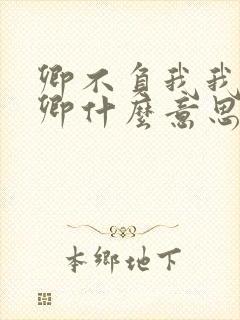 卿不負我我
卿什麼意思
本鄉地下